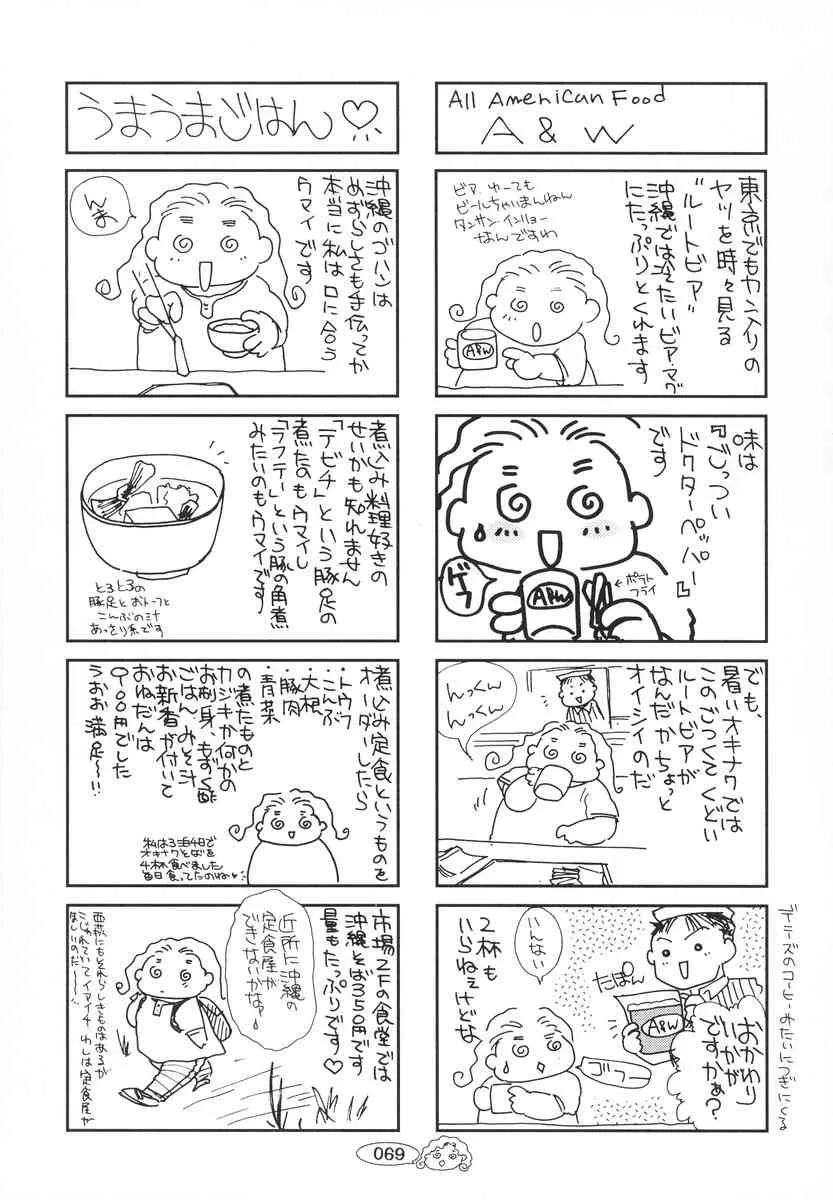 All American Food
A & W
東京でもカン入りの
ヤツを時々見る
"ルートビア"
沖縄では冷たいビア・マグ
にたっぷりとくれます
ビア、ゆーても
ビールちゃいまんねん
タンサン・インリョー
なんですわ
A&W
味は
『ごっつい
ドクターペッパー』
です
ゲフ
←ポテト
フライ
A&W
でも、
暑いオキナワでは
このごつくてくどい
ルートビアが
なんだかちょっと
オイシイのだ
んっくん
んっくん
デニーズのコーヒーみたいにつぎにくる
おかわり
いかが
ですかぁ?
たぽん
A&W
いんない
2杯も
いらねぇけどな
ゴフー
うまうまごはん♡
沖縄のゴハンは
めずらしさも手伝ってか
本当に私は口に合う
ウマイです
んま
煮込み料理好きの
せいかも知れません
「テビチ」という豚足の
煮たのもウマイし
「ラフテー」という豚の角煮
みたいのもウマイです
とろとろの
豚足とおトーフと
こんぶの汁
あっさり系です
煮込み定食というものを
オーダーしたら
・トウフ
・こんぶ
・大根
・豚肉
・青菜
の煮たものと
カジキか何かの
お刺身、もずく酢
ごはん、みそ汁
お新香が付いて
おねだんは
900円でした
うおお満足〜!!
私は3泊4日で
オキナワそばを
4杯食べました
毎日食ってたのね♡
市場2Fの食堂では
沖縄そば350円です
量もたっぷりです♡
近所に沖縄の
定食屋が
できないかな?
西荻にもそれらしきものはあるが
こじゃれていてイマイチ わしは定食屋が
ほしいのだ〜〜
069